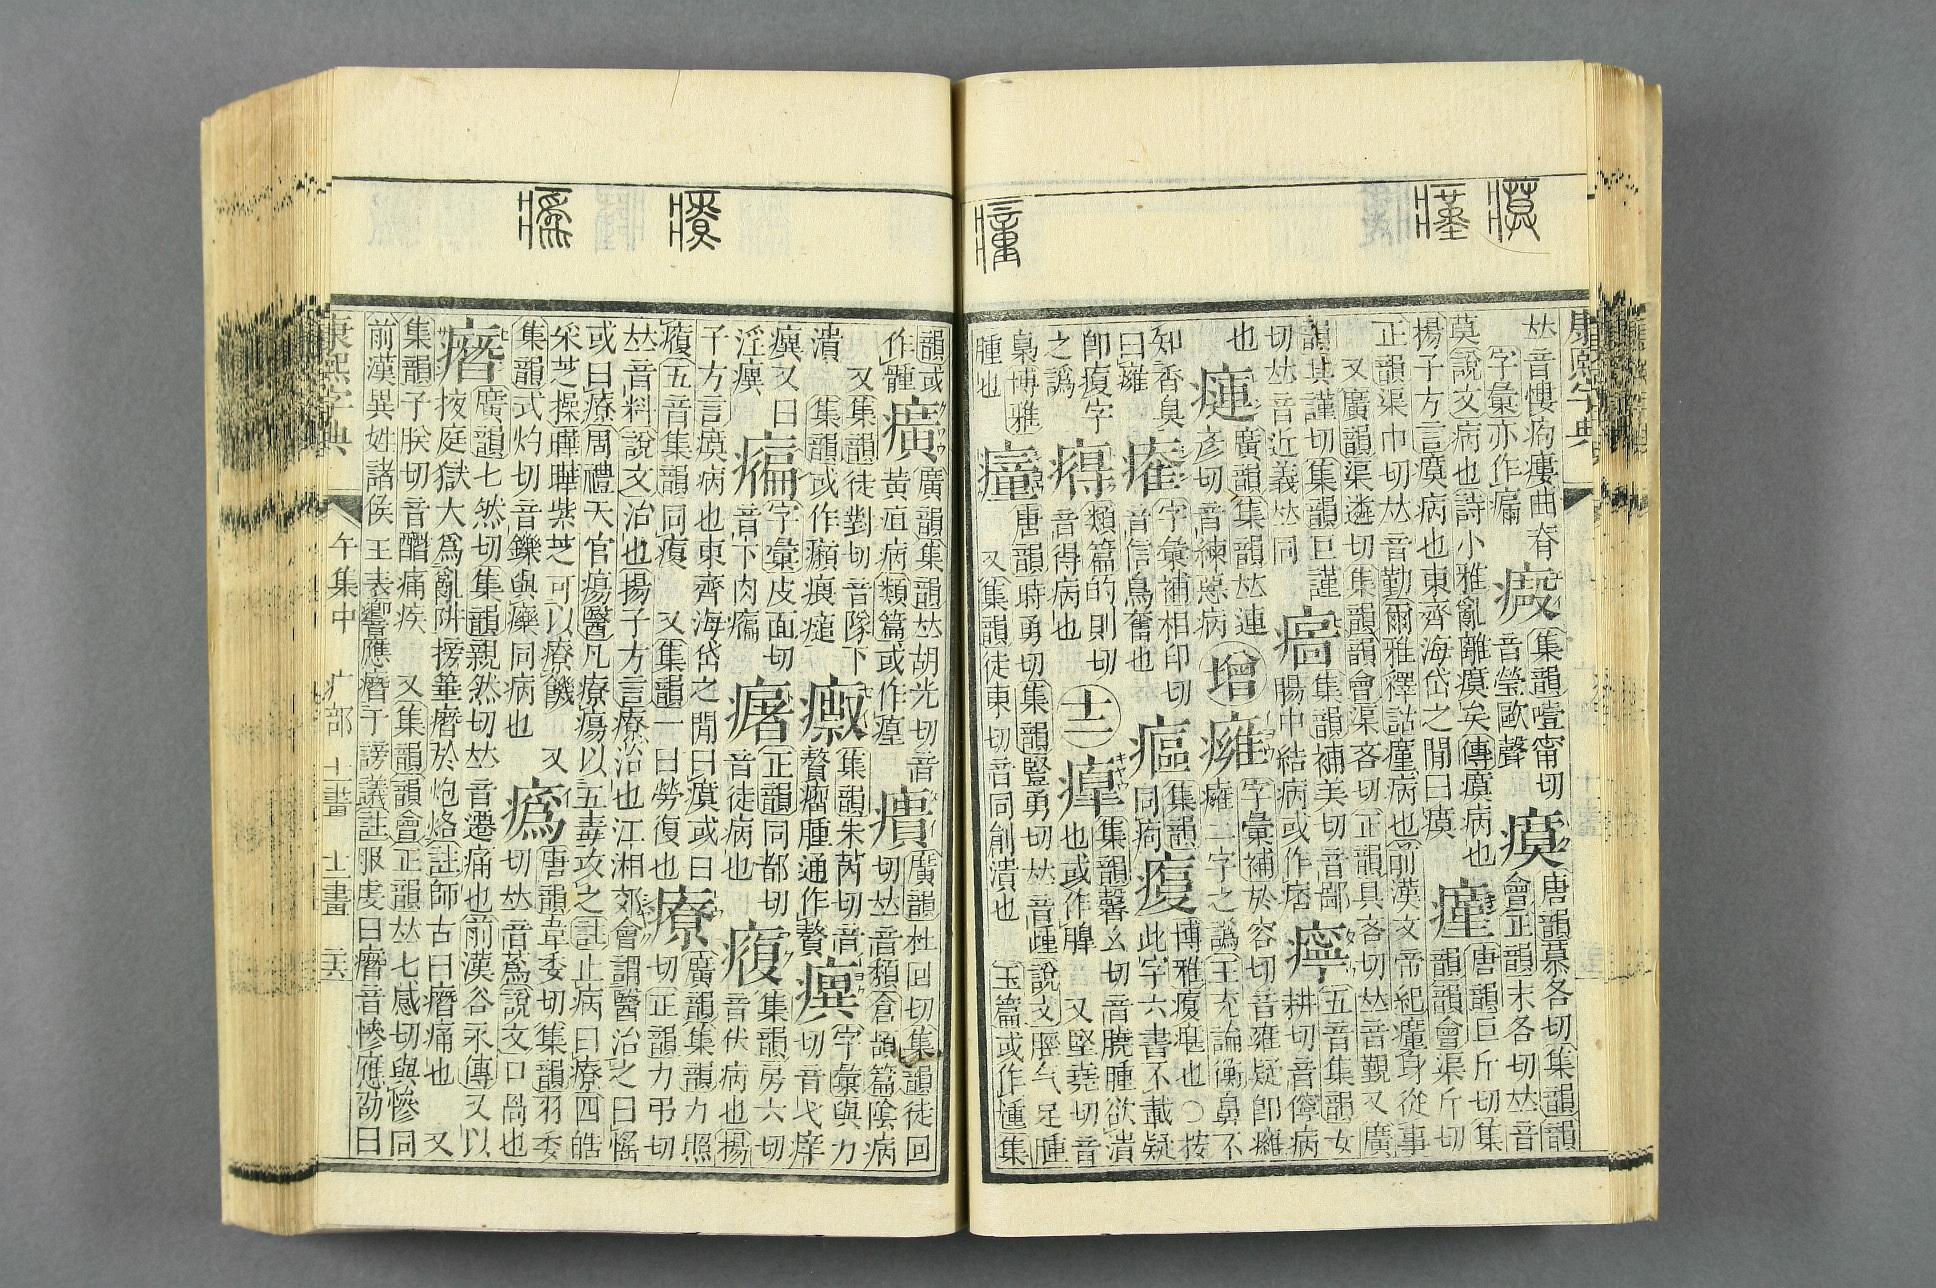 康熙字典
𠀤音慺痀瘻曲脊
字彙亦作
集韻噎甯切
音瑩歐聲
瘼
唐韻慕各切集韻韻
會正韻末各切𠀤音
莫說文病也詩小雅亂離瘼矣傳瘼病也
揚子方言瘼病也東齊海岱之閒曰瘼
瘽
唐韻巨斤切集
韻韻會渠斤切
正韻渠巾切𠀤音勤爾雅釋詁瘽病也前漢文帝紀瘽身從事
又廣韻渠遴切集韻韻會渠吝切正韻具吝切𠀤音覲又廣
韻其謹切集韻巨謹
切𠀤音近義𠀤同
集韻補美切音鄙
腸中結病或作痞
五音集韻女
耕切音儜病
也
廣韻集韻𠀤連
彥切音練惡病
增
字彙補於容切音雍疑卽癰
癰二字之譌王充論衡鼻不
知香臭
曰
字彙補相印切
音信鳥奮也
集韻
同痀
博雅 皰也○按
此字六書不載疑
卽 字
之譌
類篇的則切
音得病也
十二
集韻馨幺切音膮腫欲潰
也或作 又堅堯切音
梟博雅
腫也
瘇
唐韻時勇切集韻豎勇切𠀤音踵說文脛气足腫
又集韻徒東切音同創潰也 玉篇或作尰集
韻或
作
癀
廣韻集韻𠀤胡光切音
黃疸病類篇或作
廣韻杜回切集韻徒回
切𠀤音頹倉頡篇陰病
又集韻徒對切音隊下
潰 集韻或作
集韻朱芮切音
贅瘤腫通作贅
字彙與力
切音弋痒
又曰
淫
字彙皮面切
音卞肉
瘏
正韻同都切
音徒病也
集韻房六切
音伏病也揚
子方言瘼病也東齊海岱之閒曰瘼或曰
五音集韻同 又集韻一曰勞復也
療
廣韻集韻力照
切正韻力弔切
𠀤音料說文治也揚子方言療治也江湘郊會謂醫治之曰愮
或曰療周禮天官瘍醫凡療瘍以五毒攻之註止病曰療四皓
采芝操曄曄紫芝可以療饑 又
集韻式灼切音鑠與 同病也
唐韻韋委切集韻羽委
切𠀤音蔿說文口咼也
廣韻七然切集韻親然切𠀤音遷痛也前漢谷永傳又以
掖庭獄大爲亂阱搒箠 於炮烙註師古曰 痛也 又
集韻子朕切音 痛疾 又集韻韻會正韻𠀤七感切與慘同
前漢異姓諸侯王表嚮應 于謗議註服虔曰 音慘應劭曰
康熙字典 午集中 疒部 十一畫 十二畫